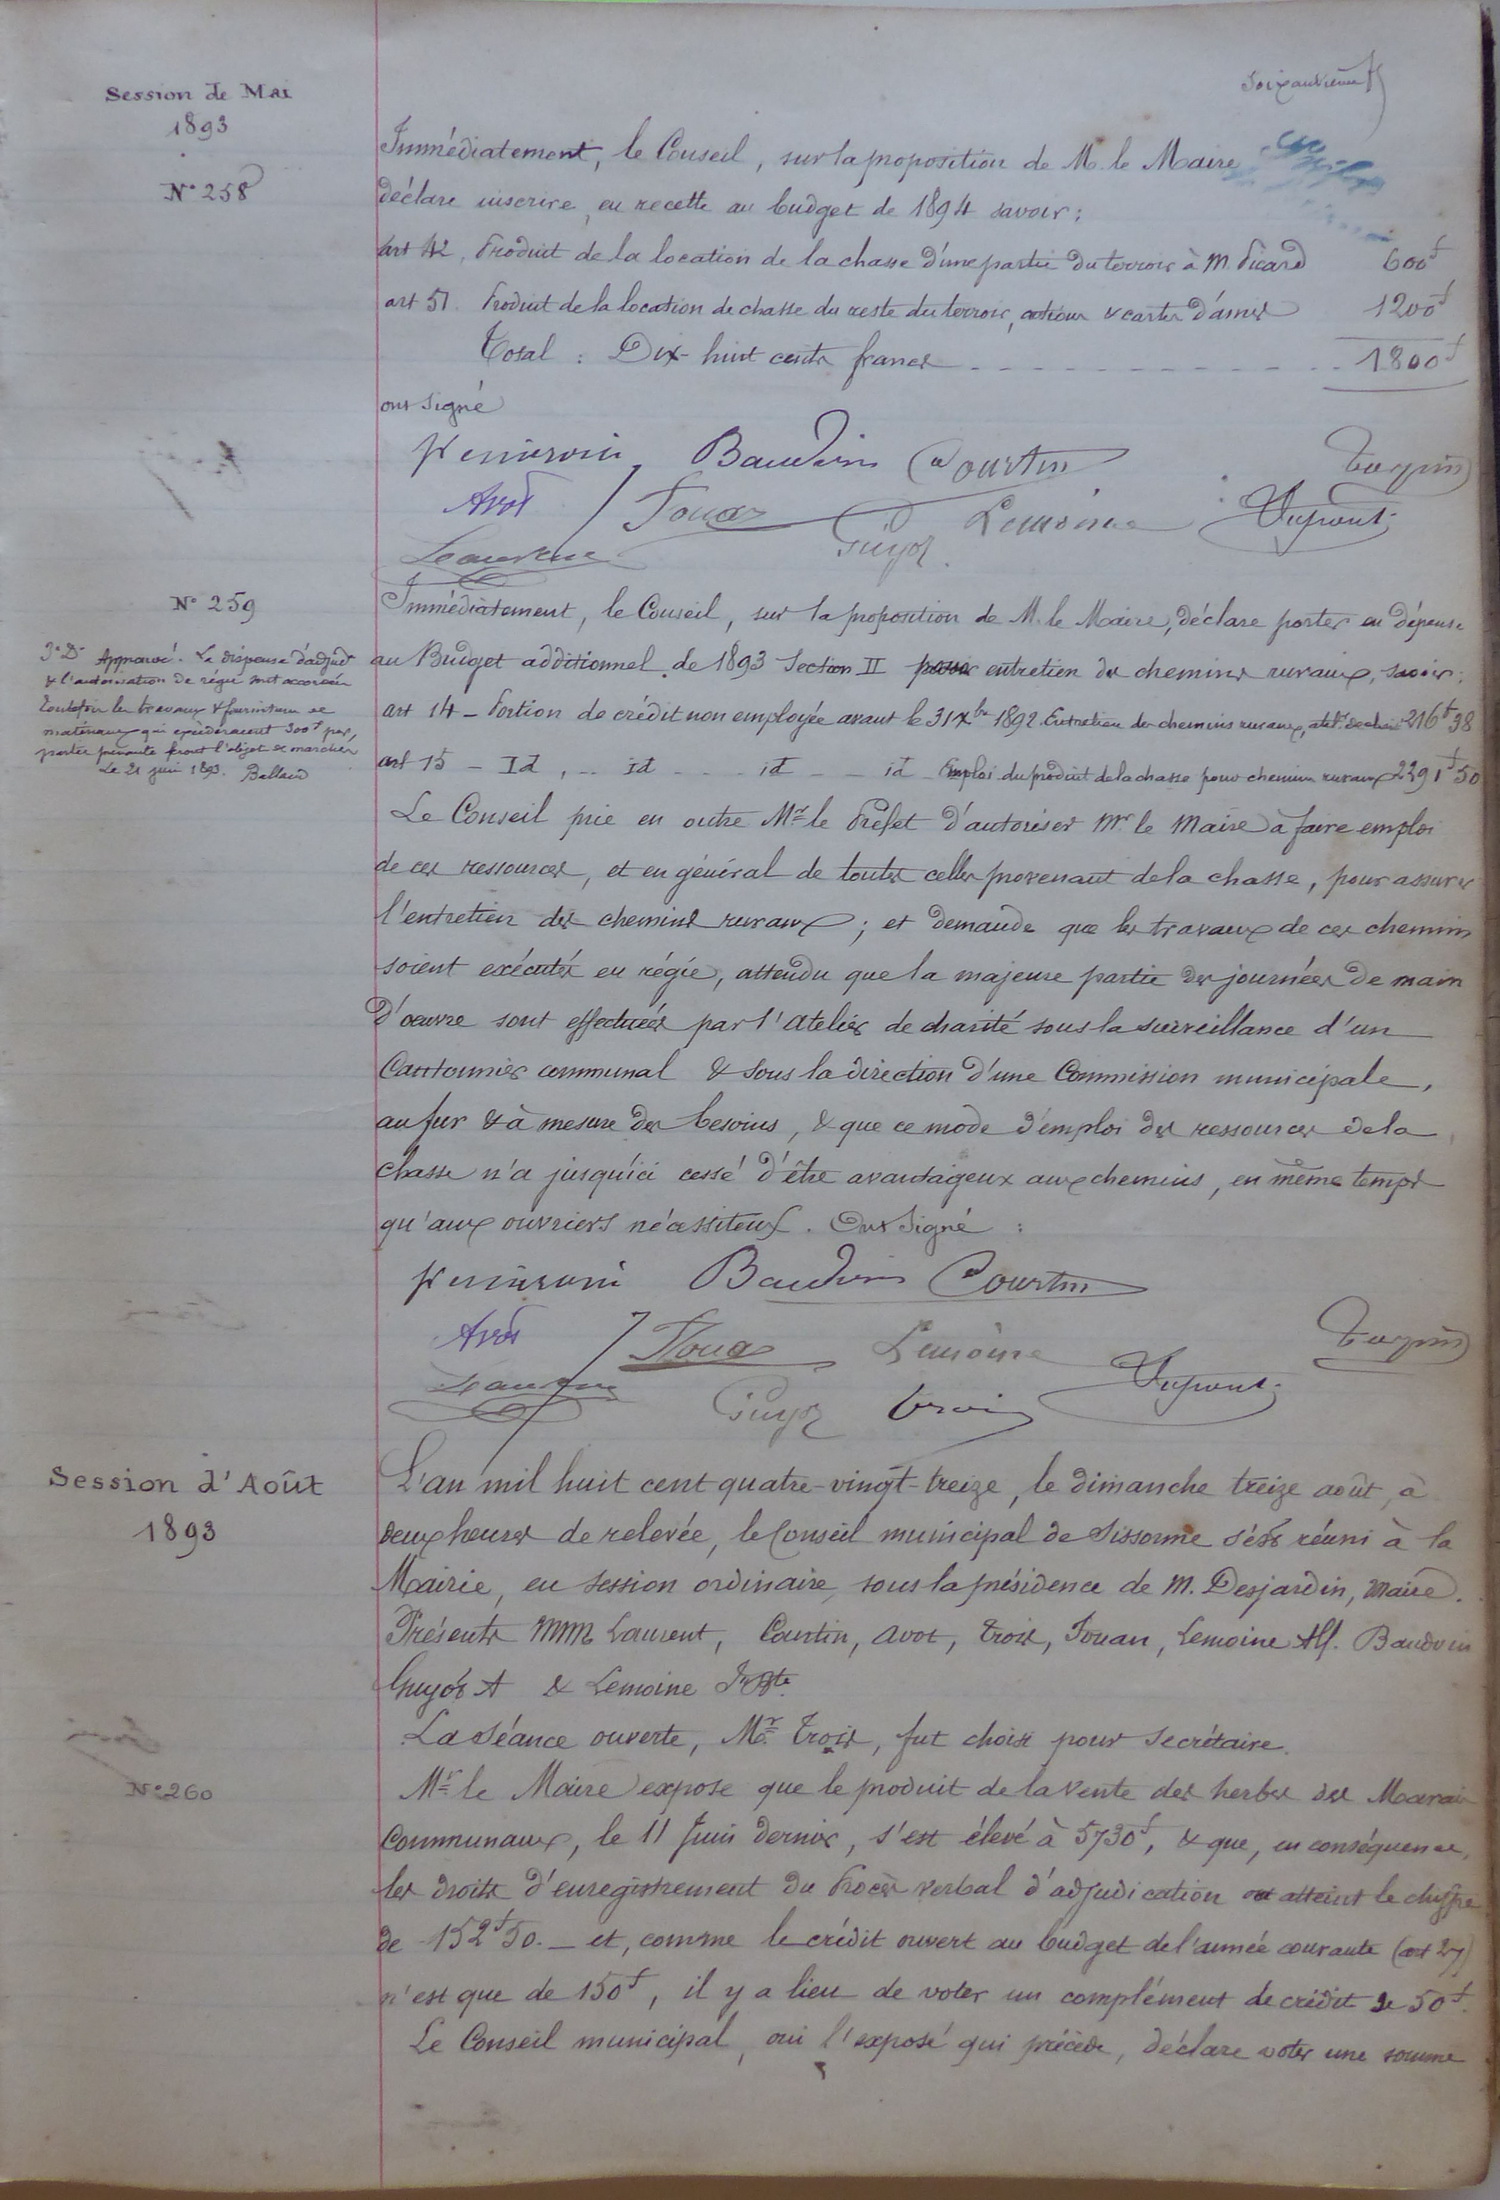 Soixantième
Session de Mai
1893
N° 258
Immédiatement, le Conseil, sur la proposition de M. le Maire
déclare inscrire, en recette au budget de 1894 savoir :
art 42, Produit de la location de la chasse d'une partie du terroir à M. Picard 600f
art 51. Produit de la location de chasse du reste du terroir, actions & cartes d'amis 1200f
Total : Dix-huit cents francs 1800f
ont signé
Baudvin Courtin Turpin
Avot Touan Guyot Lemoine Dupont
N° 259
3e Don Approuvé. La dispense d'adjudon
& l'autorisation de régie sont accordées
toutefois les travaux & fournitures de
matériaux qui excéderaient 300f par
partie prenante feront l'objet de marchés
Le 21 juin 1893.
Immédiatement, le Conseil, sur la proposition de M. le Maire, déclare porter en dépense
au Budget additionnel de 1893 Section II entretien des chemins ruraux, savoir :
art 14 - Portion de crédit non employée avant le 31 Xbre 1892. Entretien des chemins ruraux, 216f38
art 15 - Id, - id - id - id - Emploi du produit de la chasse pour chemins ruraux 2291f50
Le Conseil prie en outre Mr le Préfet d'autoriser Mr le Maire à faire emploi
de ces ressources, et en général de toutes celles provenant de la chasse, pour assurer
l'entretien des chemins ruraux ; et demande que les travaux de ces chemins
soient exécutés en régie, attendu que la majeure partie des journées de main
d'œuvre sont effectuées par l'atelier de charité sous la surveillance d'un
Cantonnier communal & sous la direction d'une Commission municipale,
au fur & à mesure des besoins, & que ce mode d'emploi des ressources de la
chasse n'a jusqu'ici cessé d'être avantageux aux chemins, en même temps
qu'aux ouvriers nécessiteux. Ont signé :
Baudvin Courtin
Avot Touan Lemoine Turpin
Guyot Trois Dupont
Session d'Août
1893
L'an mil huit cent quatre-vingt-treize, le dimanche treize août, à
deux heures de relevée, le Conseil municipal de Sissonne s'est réuni à la
Mairie, en session ordinaire, sous la présidence de M. Desjardin, Maire.
Présents MM Laurent, Courtin, Avot, Trois, Touan, Lemoine Alf. Baudvin
Guyot A & Lemoine
La séance ouverte, Mr Trois, fut choisi pour secrétaire.
N° 260
Mr le Maire expose que le produit de la vente des herbes des Marais
Communaux, le 11 Juin dernier, s'est élevé à 5730f, & que, en conséquence,
les droits d'enregistrement du Procès verbal d'adjudication ont atteint le chiffre
de 152f50. - et, comme le crédit ouvert au budget de l'année courante (art 27)
n'est que de 150f, il y a lieu de voter un complément de crédit de 50f.
Le Conseil municipal, ouï l'exposé qui précède, déclare voter une somme